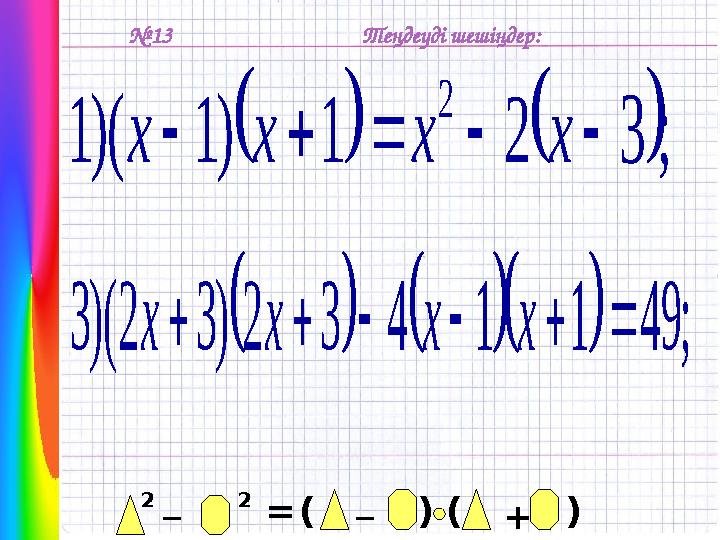 №13 Теңдеуді шешіңдер:
1)(x - 1)(x + 1) = x² - 2(x - 3);
3)(2x + 3)(2x + 3) - 4(x - 1)(x + 1) = 49;
² – ² = ( – ) ( + )